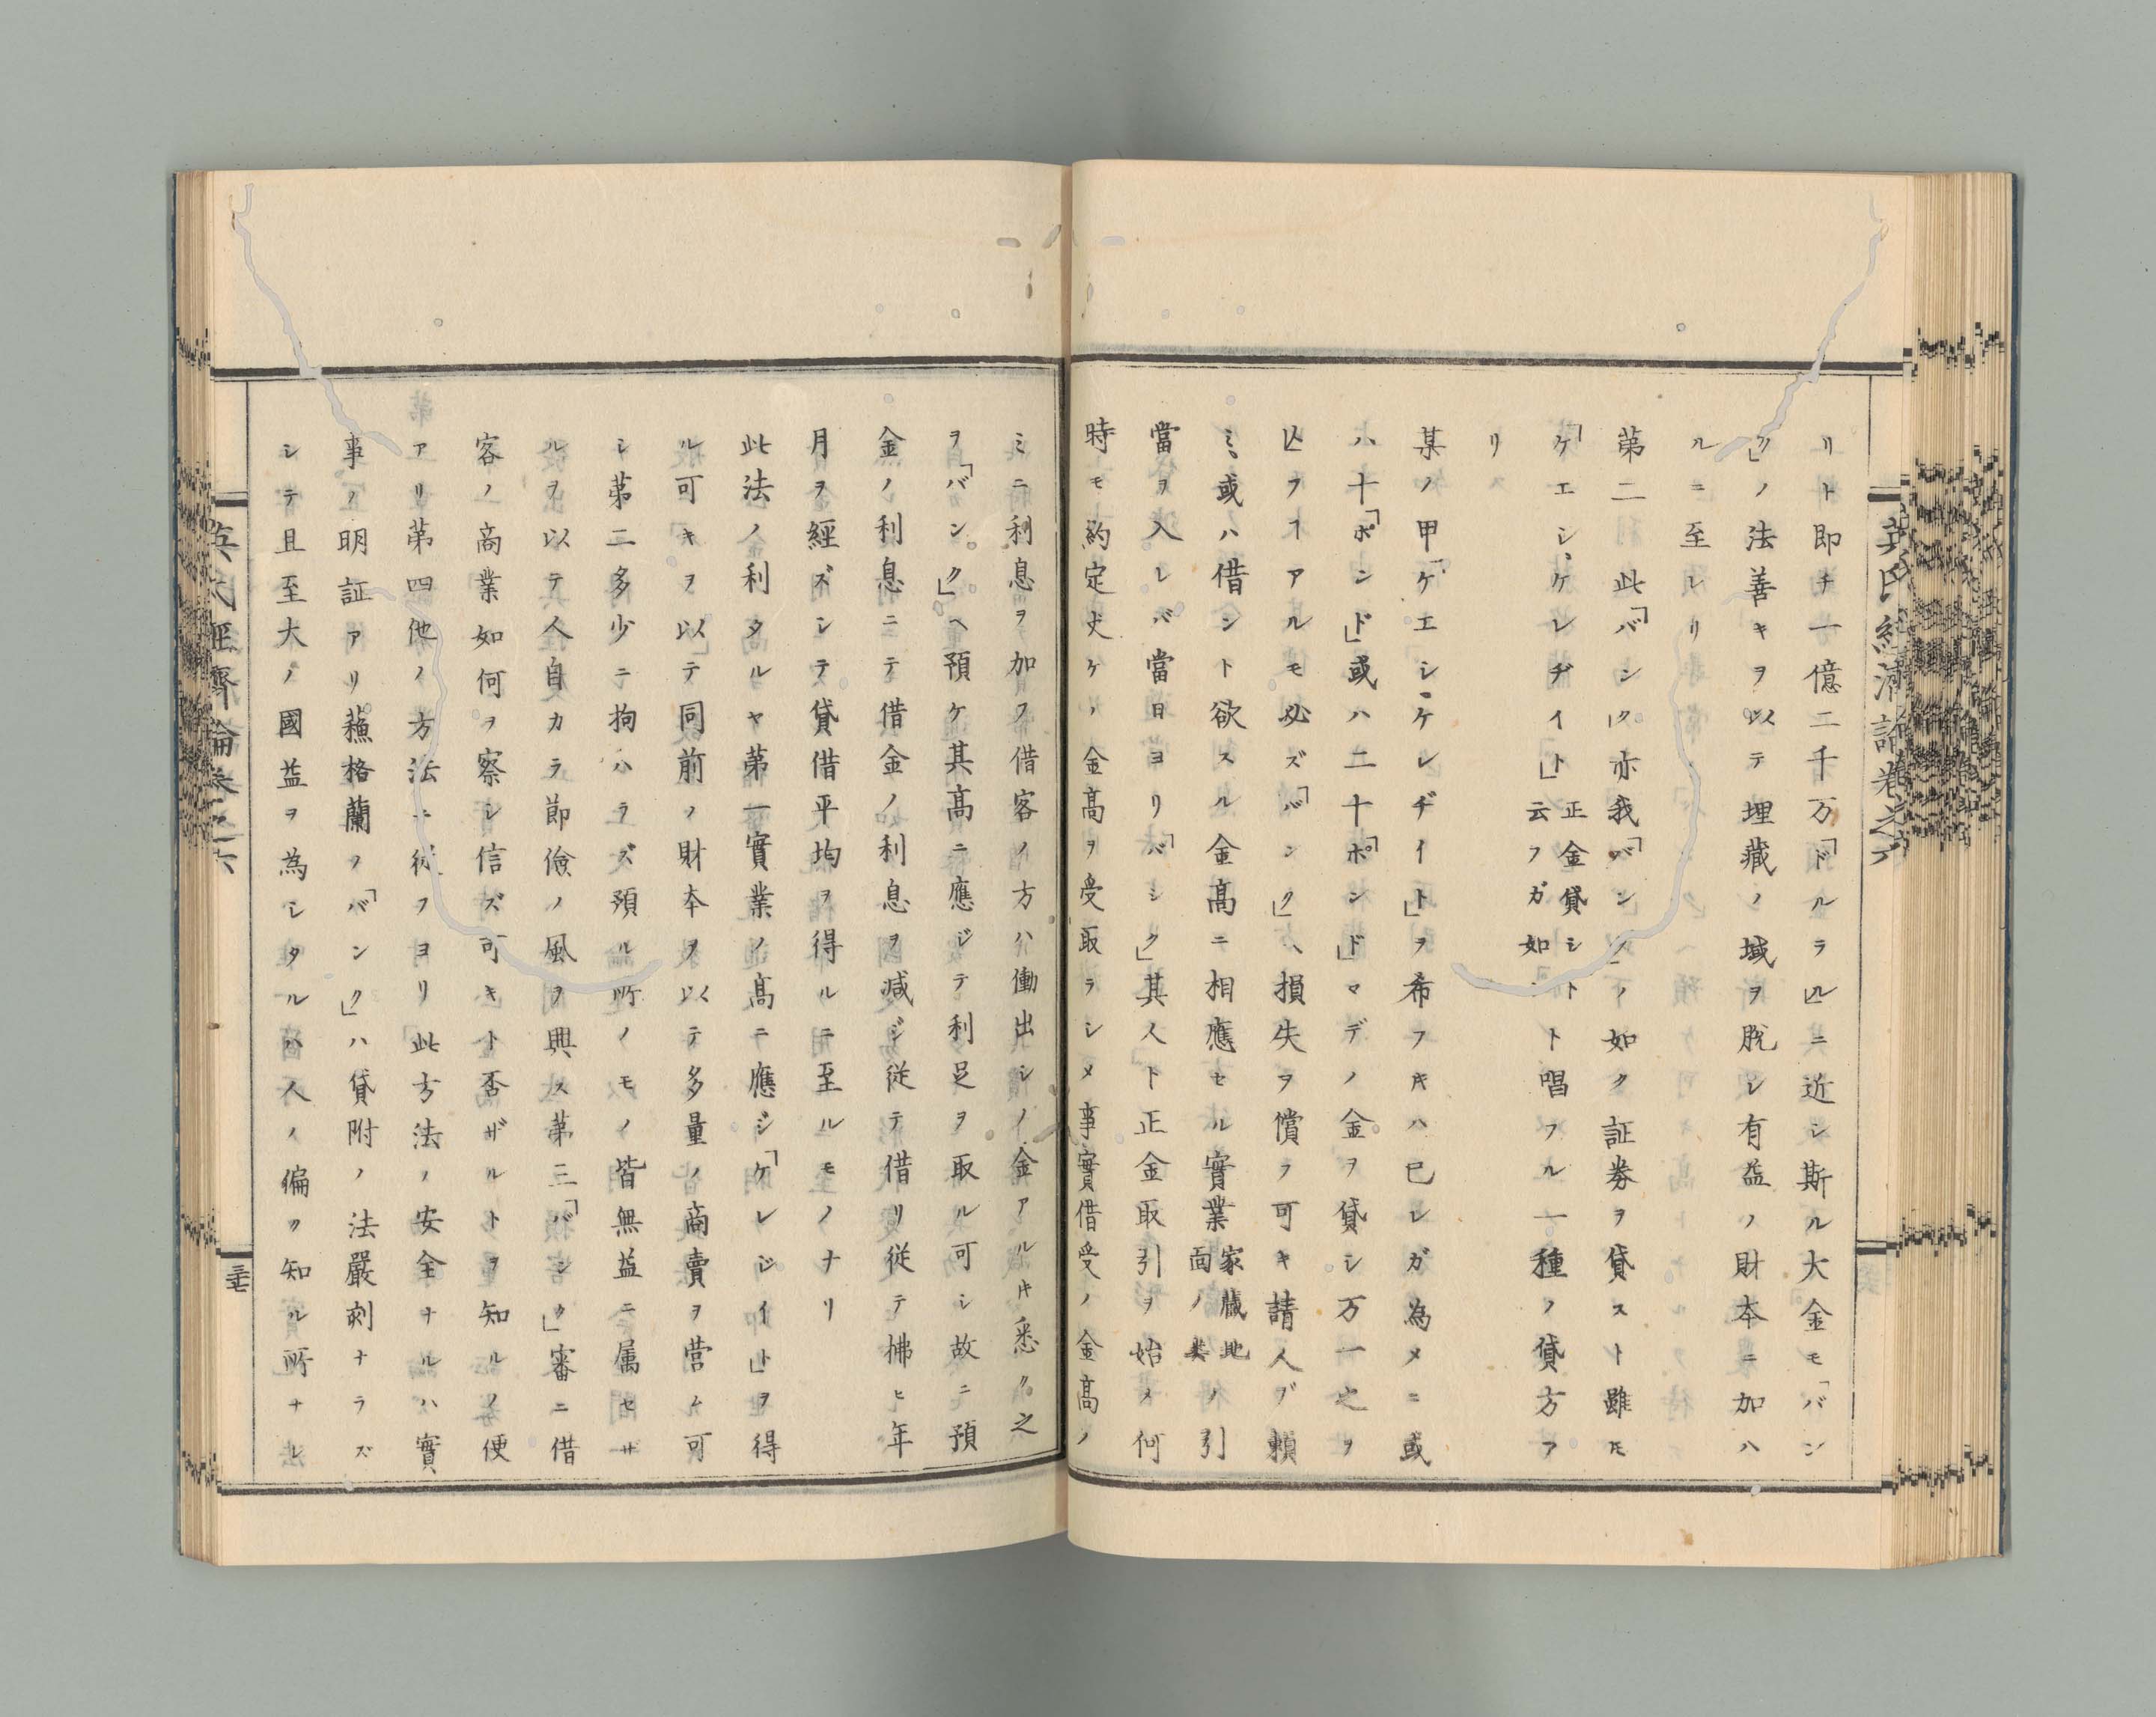 リト即チ一億二千万「ドルラル」ニ近シ斯ル大金モ「バン
ク」ノ法善キヲ以テ埋藏ノ域ヲ脱シ有益ノ財本ニ加ハ
ルニ至レリ
第二此「バンク」亦我「バンク」ノ如ク証券ヲ貸スト雖𪜈
「ケエシ、ケレヂイト」正金貸シト云フガ如シト唱フル一種ノ貸方ア
リ
某ノ甲「ケエシ、ケレヂイト」ヲ希フ𪜈ハ已レガ為メニ或
ハ十「ポンド」或ハ二十「ポンド」マデノ金ヲ貸シ万一之ヲ
失フヿアルモ必ズ「バンク」ヘ損失ヲ償フ可キ請人ヲ頼
ミ、或ハ借シト欲スル金高ニ相應セル實業家藏地面ノ類ノ引
當ヲ入レバ當日ヨリ「バンク」其人ト正金取引ヲ始メ何
時モ約定丈ケノ金高ヲ受取ラシメ事實借受ノ金高ノ
ミニ利息ヲ加フ借客ノ方ハ働出シノ金アル𪜈悉ク之
ヲ「バンク」ヘ預ケ其高ニ應ジテ利足ヲ取ル可シ故ニ預
金ノ利息ニテ借金ノ利息ヲ減ジ従テ借リ従テ拂ヒ年
月ヲ經ズシテ貸借平均ヲ得ルニ至ルモノナリ
此法ノ利タルヤ第一實業ノ高ニ應ジ「ケレジイト」ヲ得
ル可キヲ以テ同前ノ財本ヲ以テ多量ノ商賣ヲ営ム可
シ第二多少ニ拘ハラズ預ル所ノモノ皆無益ニ属セサ
ルヲ以テ人自カラ節儉ノ風ヲ興ス第三「バンク」審ニ借
客ノ商業如何ヲ察シ信ズ可キト否ザルトヲ知ルノ便
アリ第四他ノ方法ニ従フヨリ此方法ノ安全ナルハ實
事ノ明証アリ蘓格蘭ノ「バンク」ハ貸附ノ法嚴刻ナラズ
シテ且至大ノ國益ヲ為シタルハ人ノ偏ク知ル所ナレ
英氏經濟論卷之六
英氏經濟論卷之六